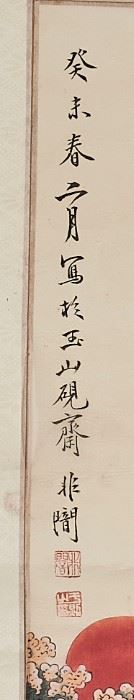 癸未春二月寫於玉山硯齋非闇